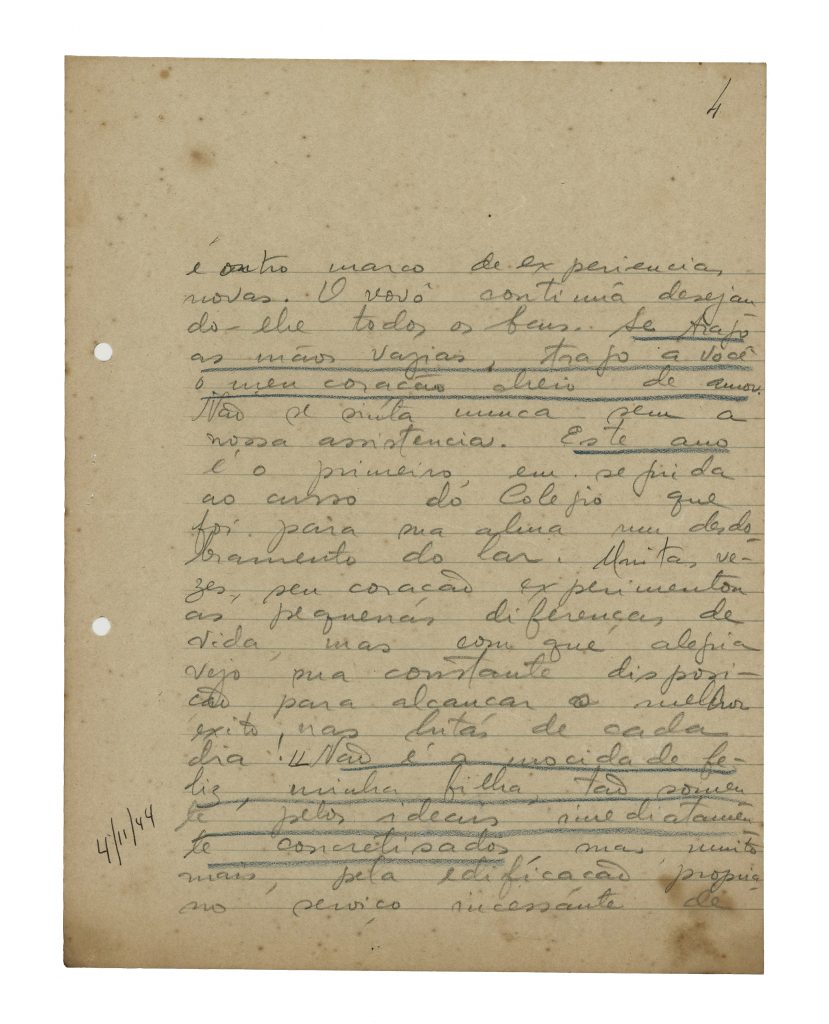 4
é outro marco de experiencias
novas. O vovô continuá desejan
do-lhe todos os bens. Se trajo
as mãos vazias, trajo a você
o meu coração cheio de amor.
Não se sinta nunca sem a
nossa assistencia. Este ano
é o primeiro em seguida
ao curso do Colegio que
foi para sua alma um desdo-
bramento do lar. Muitas ve-
zes, seu coração experimentou
as pequenas diferenças de
vida, mas com que alegria
vejo sua constante disposi-
ção para alcançar o melhor
exito, nas lutas de cada
dia! Não é a mocidade fe-
liz, minha filha, tão somen
te pelos ideais imediatamen
te concretisados mas muito
mais, pela edificação propria
no serviço incessante de
4/11/44